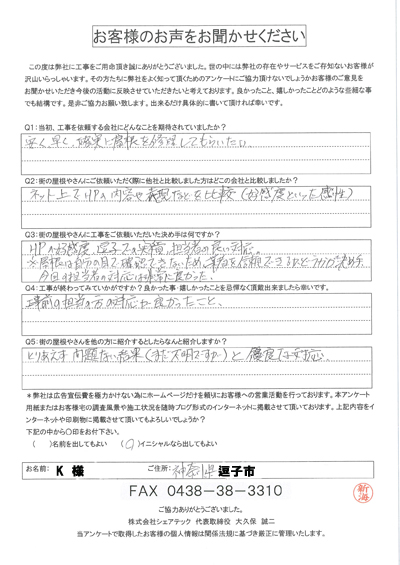 お客様のお声をお聞かせください
この度は弊社に工事をご用命頂き誠にありがとうございました。世の中には弊社の存在やサービスをご存知ないお客様が
沢山いらっしゃいます。その方たちに弊社をよく知って頂くためのアンケートにご協力頂けないでしょうかお客様のご意見を
お聞かせいただき今後の活動に反映させていただきたいと考えております。良かったこと、嬉しかったことどのような些細な事
でも結構です。是非ご協力お願い致します。出来るだけ具体的に書いて頂ければ幸いです。
Q1:当初、工事を依頼する会社にどんなことを期待されていましたか?
安く、早く、確実に屋根を修理してもらいたい
Q2:街の屋根やさんにご依頼いただく際に他社と比較しました方はどこの会社と比較しましたか?
ネット上でHPの内容や表現などを比較(好感度といった感性)
Q3:街の屋根やさんに工事をご依頼いただいた決め手は何ですか?
HPの好感度、逗子での実績、担当者の良い対応。
※屋根は自分の目で確認できないため、業者を信頼できるかどうかが決め手
今回の担当者の対応は非常に良かった。
Q4:工事が終わってみていかがですか?良かった事・嬉しかったことを忌憚なく頂戴出来ましたら幸いです。
事前の担当の方の対応が良かったこと。
Q5:街の屋根やさんを他の方に紹介するとしたらなんと紹介しますか?
とりあえず問題ない結果(まだ不明ですが)と優良な対応。
*弊社は広告宣伝費を極力かけない為にホームページだけを頼りにお客様への営業活動を行っております。本アンケート
用紙またはお客様宅の調査風景や施工状況を随時ブログ形式のインターネットに掲載させて頂いております。上記内容をイ
ンターネットや印刷物に掲載させて頂いてもよろしいでしょうか?
下記の中から〇印をお付下さい。
( )名前を出してもよい (〇)イニシャルなら出してもよい
お名前: K 様 ご住所: 神奈川県 逗子市
FAX 0438-38-3310
新海
ご協力ありがとうございました。
株式会社シェアテック 代表取締役 大久保 誠二
当アンケートで取得したお客様の個人情報は関係法規に基づき厳正に管理いたします。